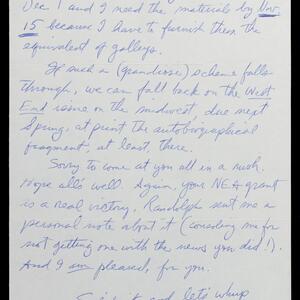 Dec. 1 and I need the material by Nov.
15 because I have to furnish them the
equivalent of galleys.
If such a (grandiose) scheme falls
through, we can fall back on the West
End issue on the midwest, due next
Spring, at print the autobiographical
fragment, at least, there.
Sorry to come at you all in a rush.
Hope all's well. Again, your NEA grant
is a real victory. Randolph sent me a
personal note about it (consoling me for
not getting one with the news you did!).
And I am pleased, for you.
and let's whup